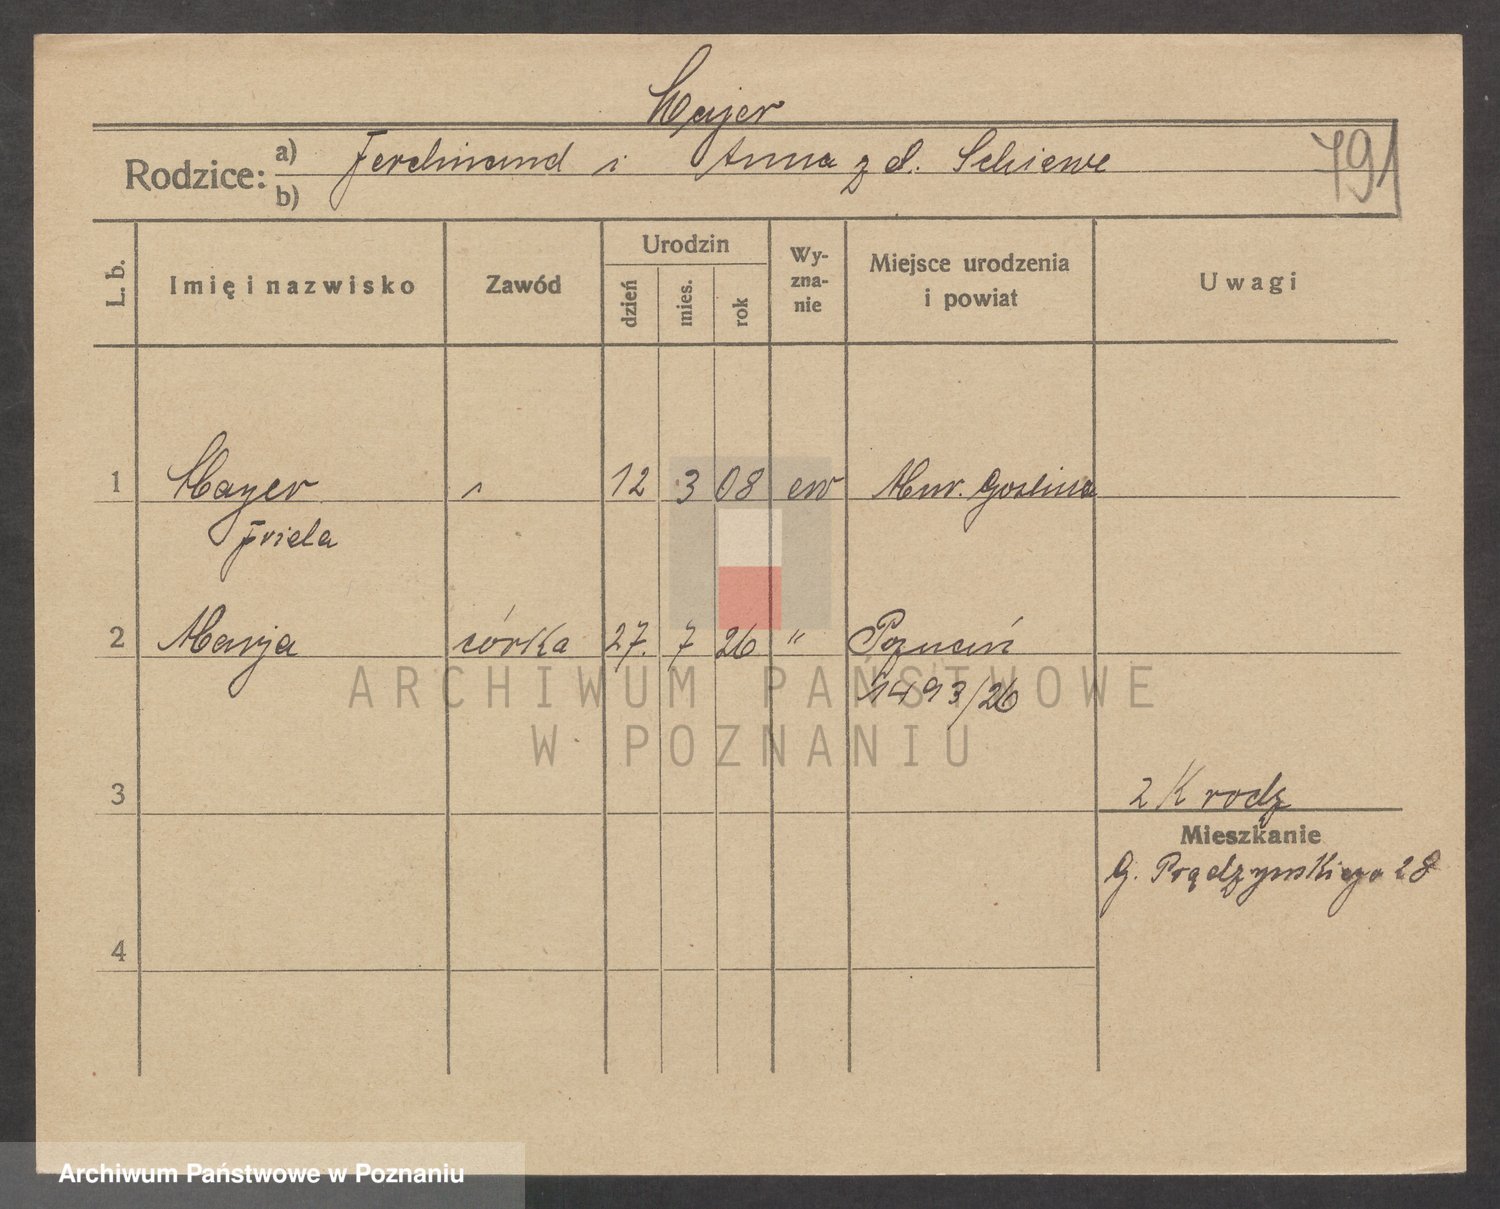 Majer
Rodzice: a) Ferdinand i Anna z d. Schiewe
b)
791
L. b.
Imię i nazwisko
Zawód
Urodzin
dzień
mies.
rok
Wy-
zna-
nie
Miejsce urodzenia
i powiat
Uwagi
1 Mayer 12 3 08 ew Mur. Goslina
Frieda
2 Marja córka 27. 7 26 " Poznań
1493/26
ARCHIWUM PAŃSTWOWE
W POZNANIU
3
2 K rodz
Mieszkanie
G. Prądzyńskiego 28
4
Archiwum Państwowe w Poznaniu